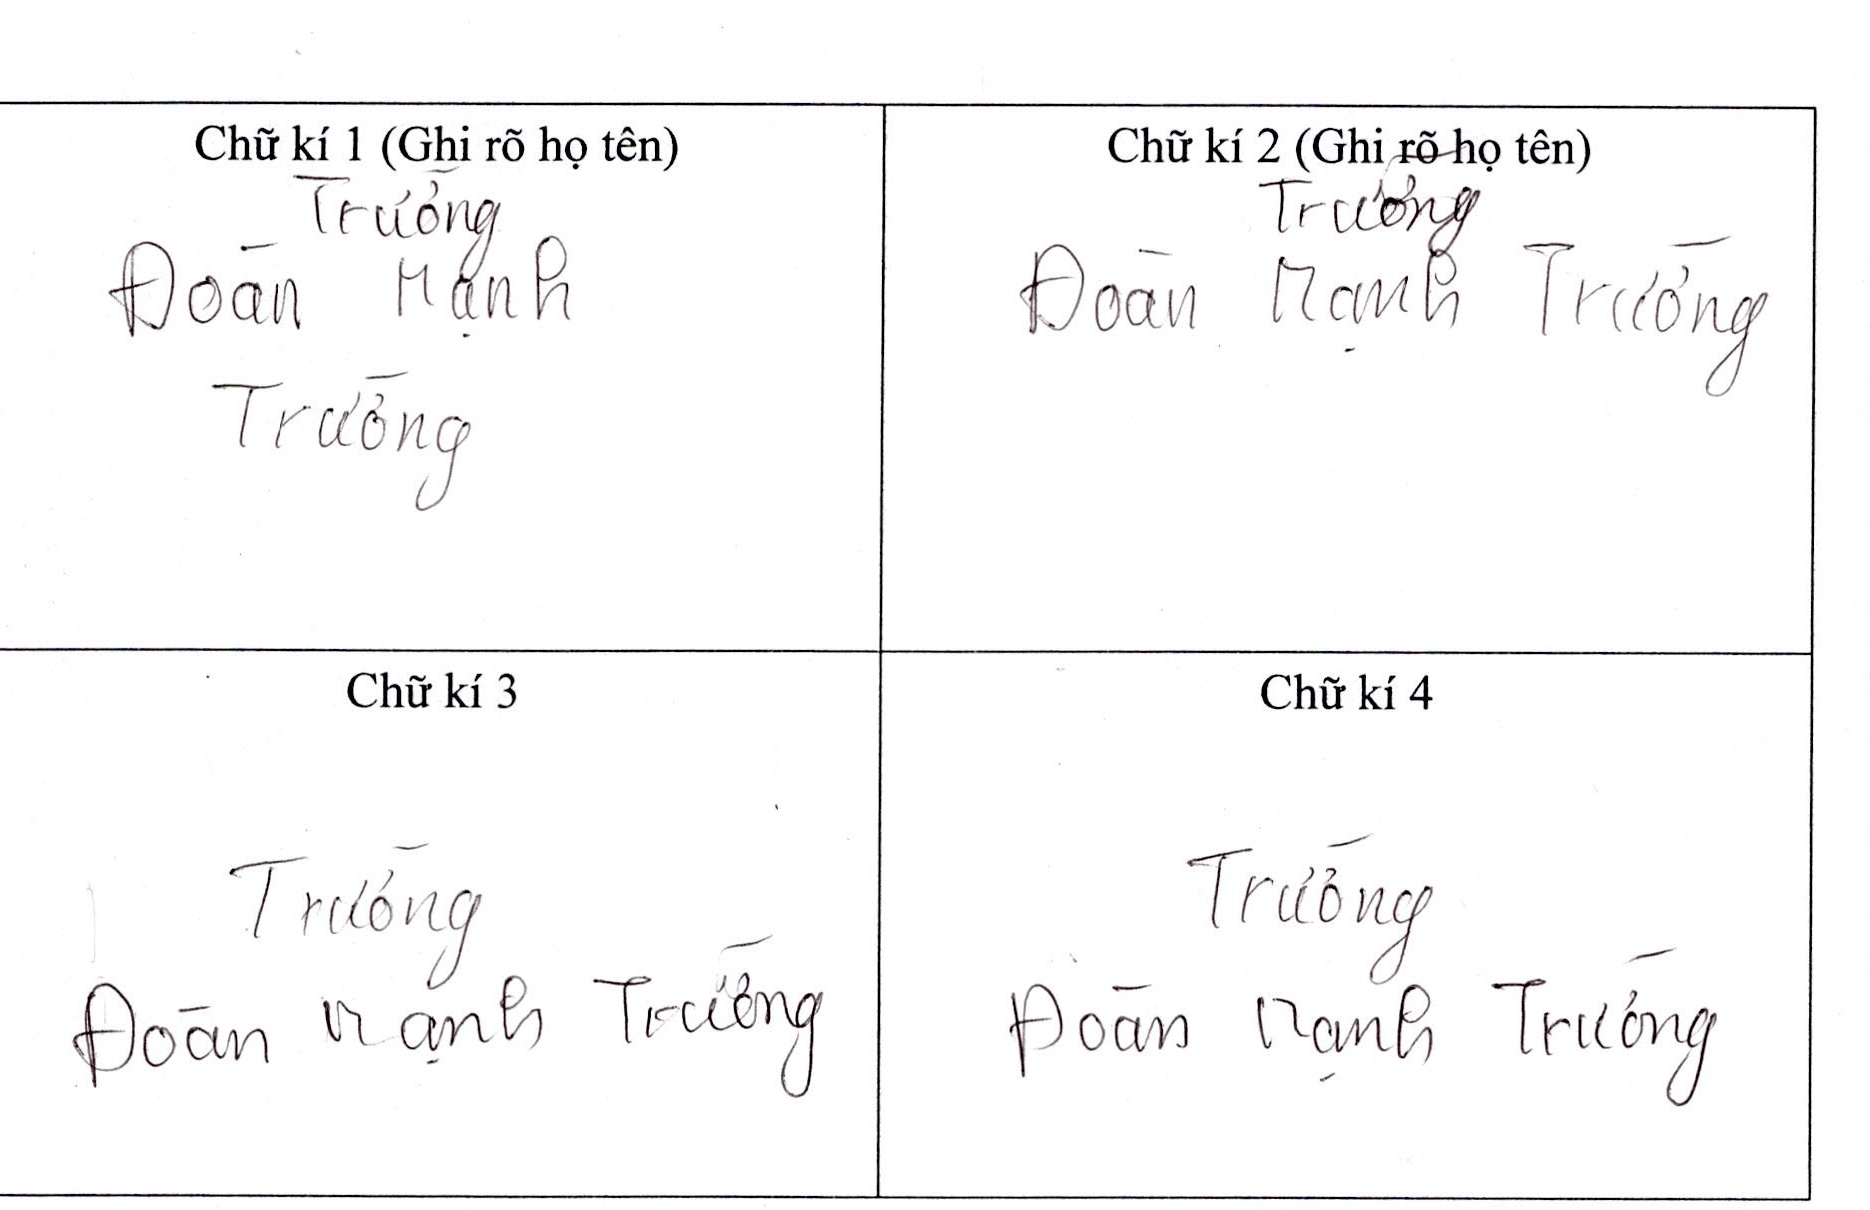 Chữ kí 1 (Ghi rõ họ tên)
Trường
Đoàn Mạnh
Trường
Chữ kí 2 (Ghi rõ họ tên)
Trường
Đoàn Mạnh Trường
Chữ kí 3
Trường
Đoàn Mạnh Trường
Chữ kí 4
Trường
Đoàn Mạnh Trường